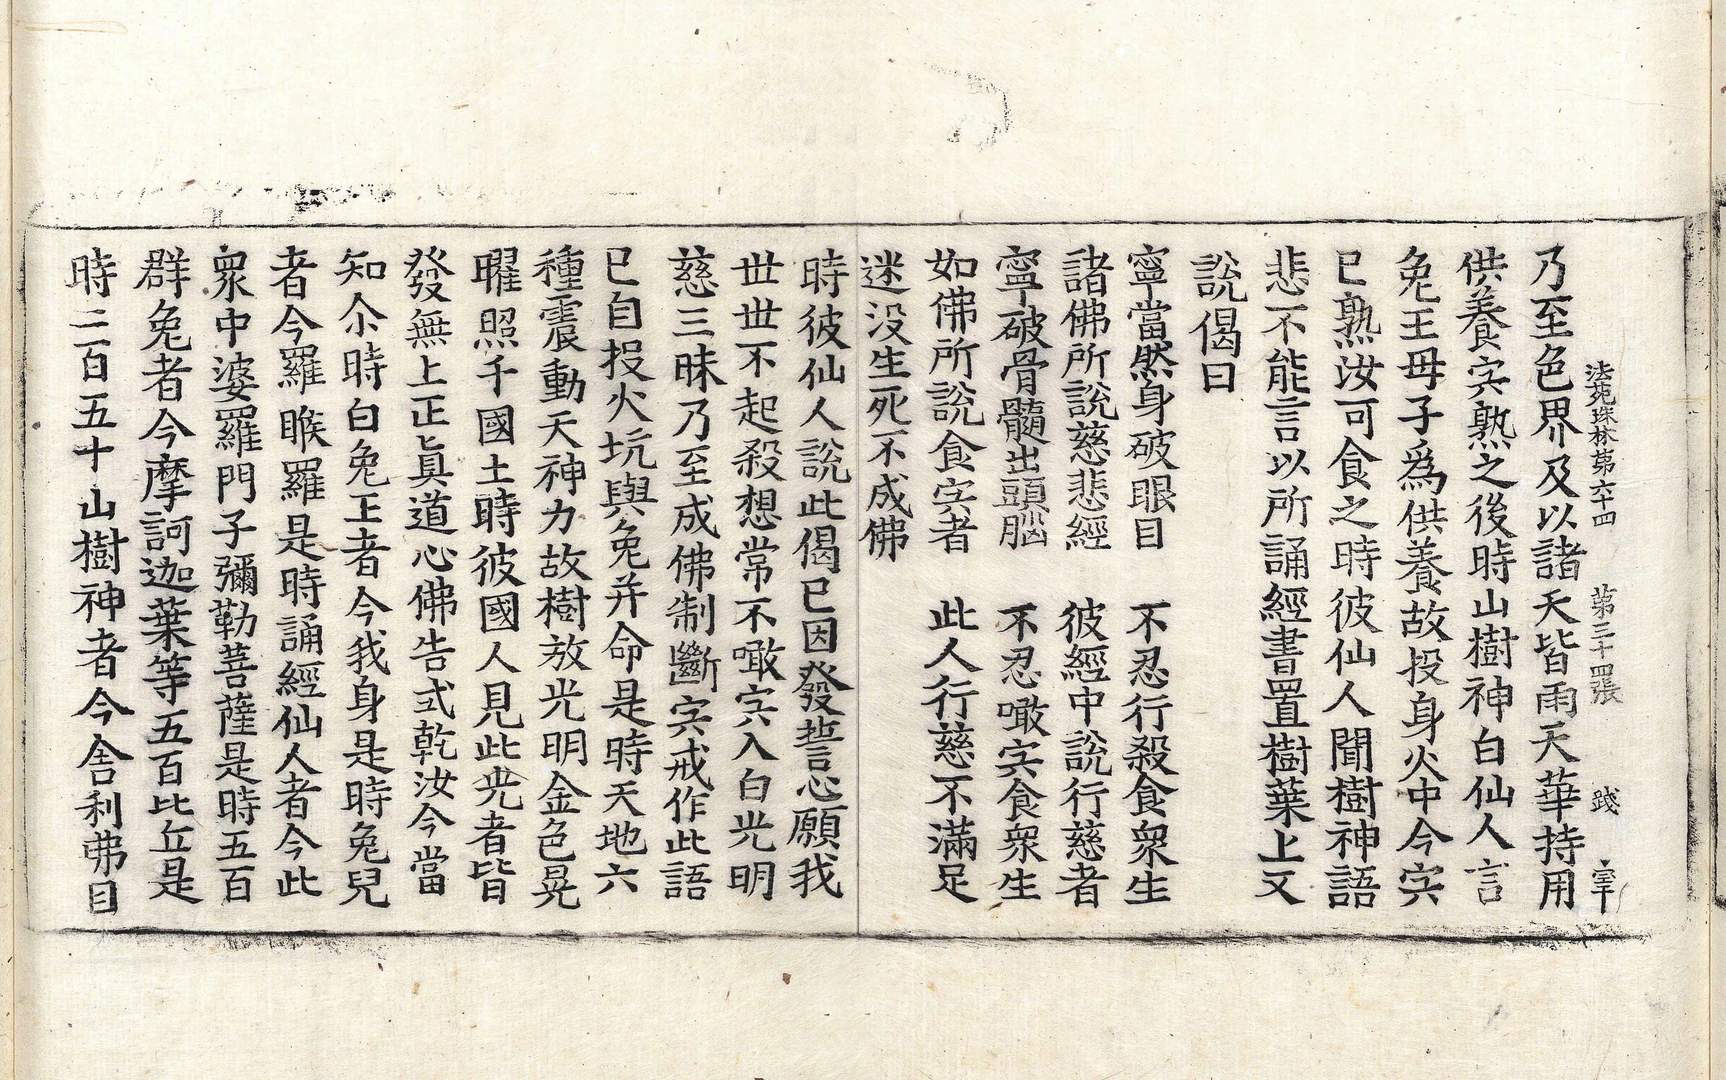 法苑珠林第六十四 第三十四張 踐 宰
乃至色界及以諸天皆雨天華持用
供養宍熟之後時山樹神白仙人言
兔王母子爲供養故投身火中今宍
已熟汝可食之時彼仙人聞樹神語
悲不能言以所誦經書置樹葉上又
說偈曰
寧當然身破眼目 不忍行殺食衆生
諸佛所說慈悲經 彼經中說行慈者
寧破骨髓出頭腦 不忍噉宍食衆生
如佛所說食宍者 此人行慈不滿足
迷没生死不成佛
時彼仙人說此偈已因發誓心願我
世世不起殺想常不噉宍入白光明
慈三昧乃至成佛制斷宍戒作此語
已自投火坑與兔并命是時天地六
種震動天神力故樹放光明金色晃
曜照千國土時彼國人見此光者皆
發無上正真道心佛告式乾汝今當
知尒時白兔王者今我身是時兔兒
者今羅睺羅是時誦經仙人者今此
衆中婆羅門子彌勒菩薩是時五百
群兔者今摩訶迦葉等五百比丘是
時二百五十山樹神者今舍利弗目